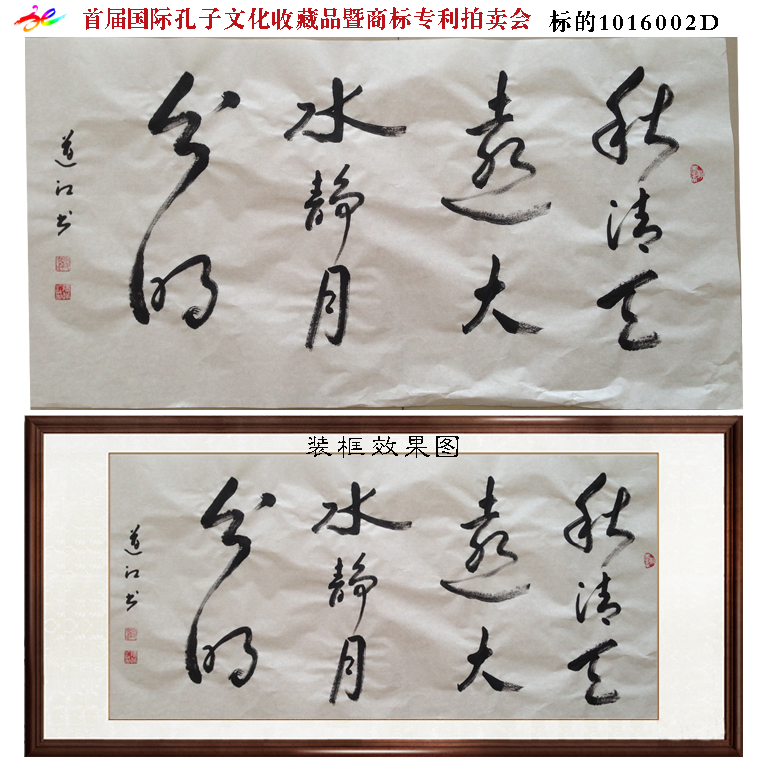 首届国际孔子文化收藏品暨商标专利拍卖会 标的1016002D
秋清天
遠大
水静月
分明
道江书
装框效果图
秋清天
遠大
水静月
分明
道江书